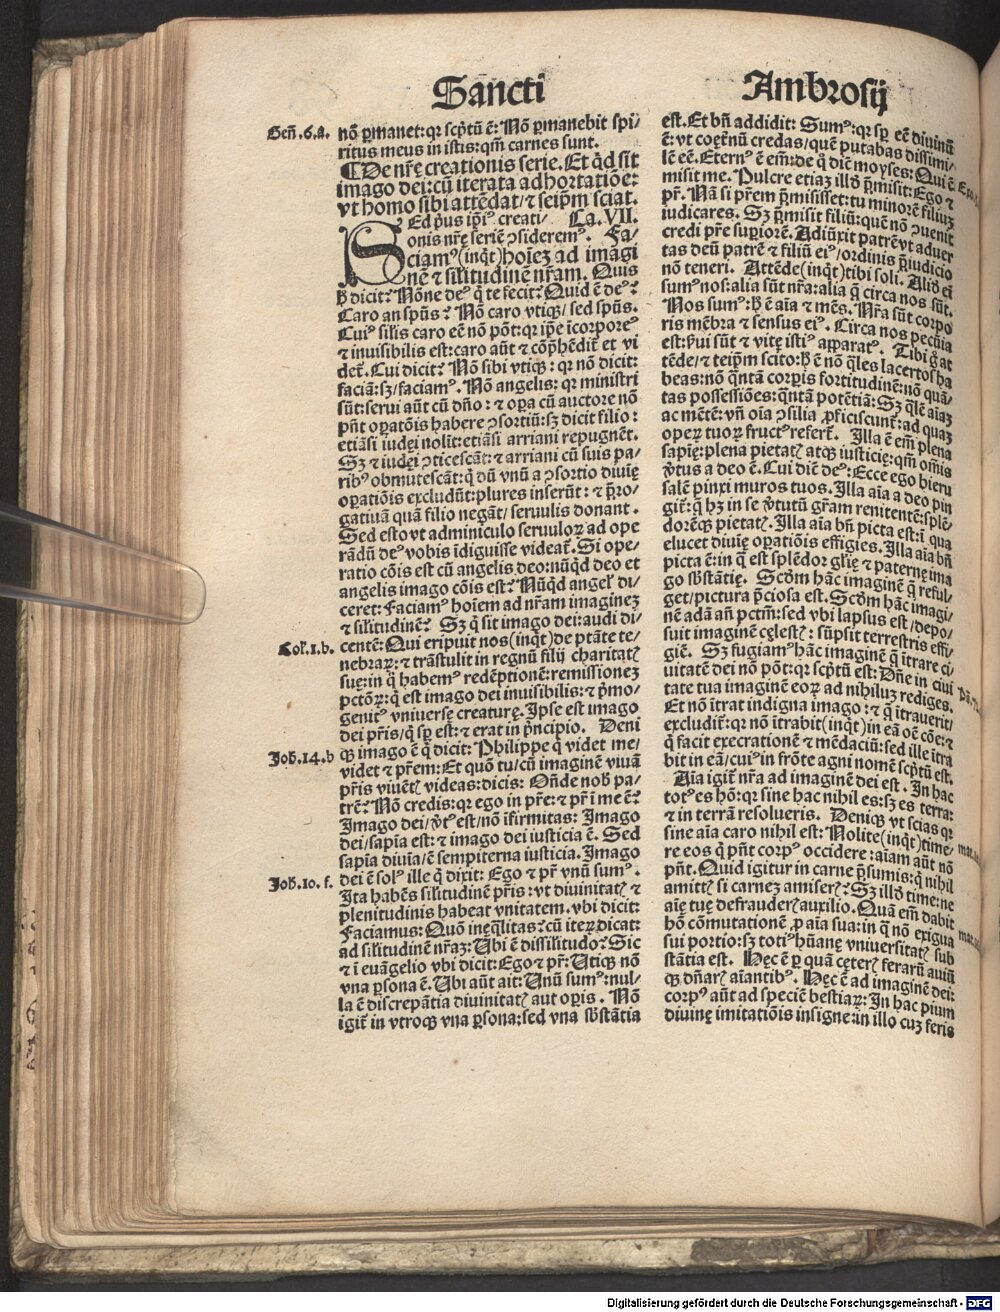 Sancti Ambrosij
Gen̄.6.a. nō ꝑmanet: qꝛ scptū ē: Nō ꝑmanebit spi⸗
ritus meus in istis: qm̄ carnes sunt.
¶De nrē creationis serie. Et qd̓ sit
imago dei: cū iterata adhortatiōe:
vt homo sibi attēdat/ ⁊ seip̄m sciat.
SEd pꝰus ip̄iꝰ creati/ Ca. VII.
onis nrē seriē ↄsideremꝰ. Fa⸗
ciamꝰ (inq̄t) hoiez ad imagi
nē ⁊ silitudinē nr̄am. Quis
h̓ dicit? Nōne deꝰ q̄ te fecit? Quid ē deꝰ?
Caro an spūs? Nō caro vtiqꝫ/ sed spūs.
Cuiꝰ silis caro eē nō pōt: qꝛ ip̄e īcorporeꝰ
⁊ inuisibilis est: caro aūt ⁊ cōp̄hēdit̄ et vi
det̄. Cui dicit? Nō sibi vtiqꝫ: qꝛ nō dicit:
faciā: sꝫ/ faciamꝰ. Nō angelis: qꝛ ministri
sūt: serui aūt cū dn̄o: ⁊ oꝑa cū auctore nō
pn̄t oꝑatōis habere ↄsortiū: sꝫ dicit filio:
etiāsi iudęi nolīt: etiāsi arriani repugnēt.
Sꝫ ⁊ iudęi ↄticescāt: ⁊ arriani cū suis pa⸗
ribꝰ obmutescāt: q̓ dū vnū a ↄsortio diuię
oꝑatiōis excludūt: plures inserūt: ⁊ p̄ro⸗
gatiuā quā filio negāt/ seruulis donant.
Sed esto vt adminiculo seruuloꝝ ad ope
rādū deꝰ vobis īdiguisse videat̄. Si ope⸗
ratio cōis est cū angelis deo: nūqd̓ deo et
angelis imago cōis est? Nūqd̓ angel̓ di⸗
ceret: Faciamꝰ hoiem ad nr̄am imaginez
⁊ silitudinē? Sꝫ q̄ sit imago dei: audi di⸗
Col̓.1.b. centē: Qui eripuit nos (inq̄t) de ptāte te⸗
nebraꝝ: ⁊ trāstulit in regnū filij charitatꝭ
suę: in q̓ habemꝰ redēptionē: remissionez
pctōꝝ: q̓ est imago dei inuisibilis: ⁊ p̓mo⸗
genitꝰ vniuersę creaturę. Ipse est imago
dei pr̄is/ q̓ sꝑ est: ⁊ erat in p̓ncipio. Deni
Joh̓.14.b qꝫ imago ē q̓ dicit: Philippe q̓ videt me/
videt ⁊ pr̄em: Et quō tu/ cū imaginē viuā
pr̄is viuētꝭ videas: dicis: On̄de nob̓ pa⸗
trē? Nō credis: qꝛ ego in pr̄e: ⁊ pr̄ ī me ē?
Imago dei/ v̓tꝰ est/ nō īfirmitas: Imago
dei/ sapīa est: ⁊ imago dei iusticia ē. Sed
sapīa diuīa/ ē sempiterna iusticia. Imago
Joh̓.10.f. dei ē solꝰ ille q̓ dixit: Ego ⁊ pr̄ vnū sumꝰ.
Ita habēs silitudinē pr̄is: vt diuinitatꝭ ⁊
plenitudinis habeat vnitatem. vbi dicit:
Faciamus: Quō inęq̄litas? cū iteꝝ dicat:
ad silitudinē nr̄az: Vbi ē dissilitudo? Sic
⁊ ī euāgelio vbi dicit: Ego ⁊ pr̄: Vtiqꝫ nō
vna ꝑsona ē. Vbi aūt ait: Vnū sumꝰ: nul⸗
la ē discrepātia diuinitatꝭ aut oꝑis. Nō
igit̄ in vtroqꝫ vna ꝑsona: sed vna sb̓stātia
est. Et bn̄ addidit: Sumꝰ: qꝛ sꝑ eē diuinū
ē: vt coęt̄nū credas/ quē putabas dissimi⸗
lē eē. Eternꝰ ē em̄: de q̓ diē moyses: Qui ē
misit me. Pulcre etiaz illd̓ p̄misit: Ego ⁊
pr̄. Nā si pr̄em p̄misisset: tu minorē filiuz
iudicares. Sꝫ p̄misit filiū: quē nō ↄuenit
credi pr̄e supiorē. Adiūxit patrē vt aduer
tas deū patrē ⁊ filiū eiꝰ/ ordinis p̄iudicio
nō teneri. Attēde (inq̄t) tibi soli. Alid̓ ei̅
sumꝰ nos: alia sūt nr̄a: alia q̄ circa nos sūt.
Nos sumꝰ: h̓ ē aīa ⁊ mēs. Nr̄a sūt corpo
ris mēbra ⁊ sensus eiꝰ. Circa nos pecūia
est: s̓ui sūt ⁊ vitę istiꝰ apparatꝰ. Tibi g̓ at
tēde/ ⁊ teip̄m scito: h̓ ē nō q̄les lacertos ha
beas: nō q̄ntā corꝑis fortitudinē: nō quā⸗
tas possessiōes: q̄ntā potētiā: Sꝫ q̄lē aiaz
ac mētē: vn̄ oīa ↄsilia ꝓficiscunt̄: ad quaz
opeꝝ tuoꝝ fructꝰ refert̄. Illa ē em̄ plena
sapię: plena pietatꝭ atqꝫ iusticię: qm̄ om̄is
v̓tus a deo ē. Cui diēē deꝰ: Ecce ego hieru
salē pinxi muros tuos. Illa aīa a deo pin
git̄: q̄ hꝫ in se v̓tutū gr̄am renitentē: splē⸗
dorēqꝫ pietatꝭ. Illa aīa bn̄ picta est: ī qua
elucet diuię oꝑatiōis effigies. Illa aīa bn̄
picta ē: in q̄ est splēdor glię ⁊ paternę ima
go sb̓stātię. Scd̓m hāc imaginē q̄ reful⸗
get/ pictura p̄ciosa est. Scd̓m hāc imagi⸗
nē adā an̄ pctm̄: sed vbi lapsus est/ depo⸗
suit imaginē cęlestꝭ: sūpsit terrestris effi⸗
giē. Sꝫ fugiamꝰ hāc imaginē q̄ ītrare ci⸗
uitatē dei nō pōt: qꝛ scptū est: Dn̄e in ciui
tate tua imaginē eoꝝ ad nihiluz rediges.
Et nō ītrat indigna imago: ⁊ q̄ ītrauerit/
excludit̄: qꝛ nō ītrabit (inq̄t) in eā oē cōe: ⁊
q̓ facit execrationē ⁊ mēdaciū: sed ille ītra
bit in eā/ cuiꝰ in frōte agni nomē scptū est.
Aīa igit̄ nr̄a ad imaginē dei est. In hac
totꝰ es hō: qꝛ sine hac nihil es: sꝫ es terra:
⁊ in terrā resolueris. Deniqꝫ vt scias qꝛ
sine aīa caro nihil est: Nolite (inq̄t) time/
re eos q̓ pn̄t corpꝰ occidere: aīam aūt nō
pn̄t. Quid igitur in carne p̄sumis: q̓ nihil
amittꝭ si carnez amiserꝭ? Sꝫ illd̓ time: ne
aię tuę defrauderꝭ auxilio. Quā em̄ dabit
hō cōmutationē ꝓ aīa sua: in q̄ nō exigua
sui portio: sꝫ totiꝰ hūanę vniuersitatꝭ sub
stātia est. Hęc ē ꝑ quā cęterꝭ ferarū auiū
qꝫ dn̄arꝭ aīantibꝰ. Hęc ē ad imaginē dei:
corpꝰ aūt ad speciē bestiaꝝ: In hac pium
diuinę imitatiōis insigne: in illo cuz feris
Digitalisierung gefördert durch die Deutsche Forschungsgemeinschaft - DFG